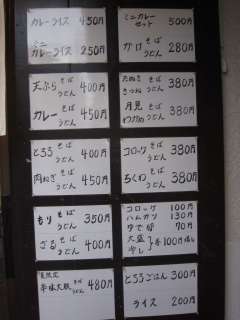 カレーライス 450円
ミニ
カレーライス 250円
ミニカレー
セット 500円
かけ そば
うどん 280円
天ぷら そば
うどん 400円
カレー そば
うどん 450円
たぬき
きつね そば
うどん 380円
月見
わかめ そば
うどん 380円
とろろ そば
うどん 400円
肉ねぎ そば
うどん 450円
コロッケ そば
うどん 380円
ちくわ そば
うどん 380円
もり そば
うどん 350円
ざる そば
うどん 400円
コロッケ 100円
ハムカツ 130円
ゆで卵 70円
大盛
冷し 各100円増し
夏限定
辛味大根 480円
とろろごはん 300円
ライス 200円